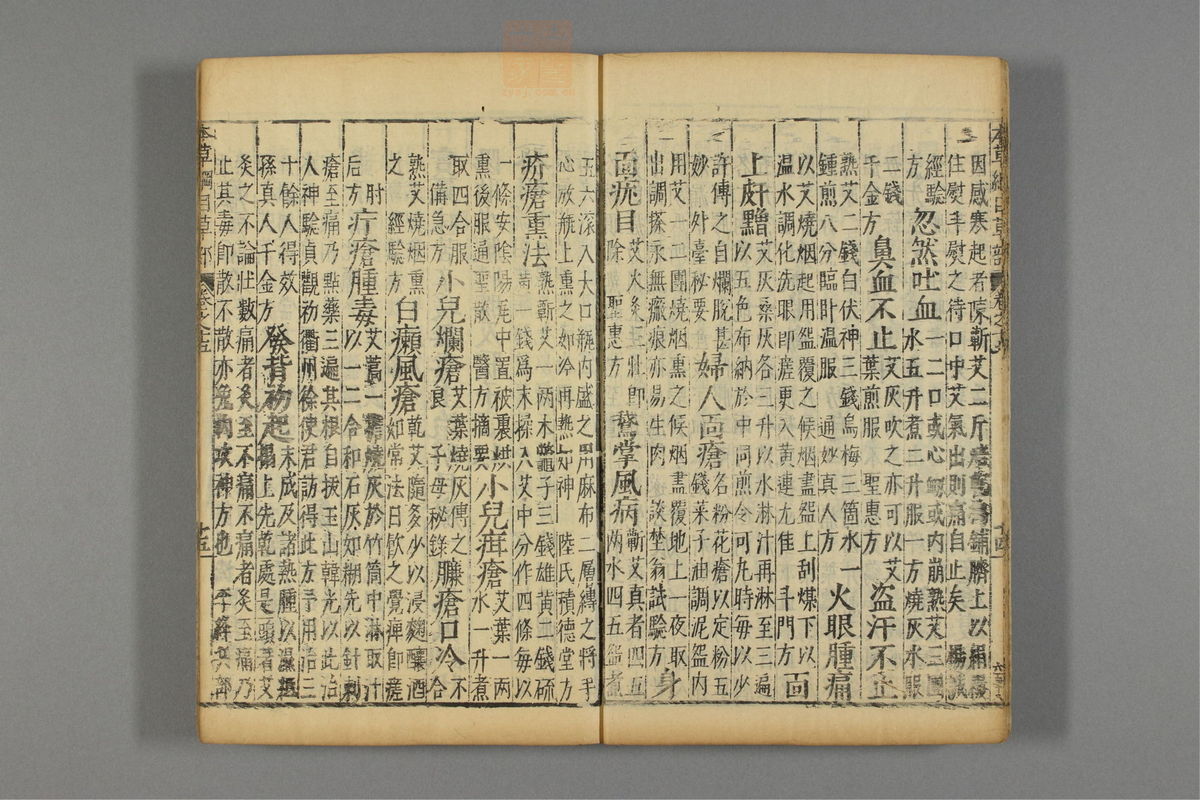 本草綱目草部 卷之十五 十四
因感寒起者陳蘄艾二斤 鋪臍上以絹覆
住熨斗熨之待口中艾氣出則痛自止矣 楊誠
經驗
方
忽然吐血
一二口或心衄或内崩熟艾三團
水五升煮二升服一方燒灰水服
二錢
千金方
鼻血不止
艾灰吹之亦可以艾
葉煎服 聖惠方
盜汗不止
熟艾二錢白伏神三錢烏梅三箇水一
鍾煎八分臨卧温服 通妙真人方
火眼腫痛
以艾燒烟起用盌覆之候烟盡盌上刮煤下以
温水調化洗眼即瘥更入黄連尤佳 斗門方
面
上皯䵟
艾灰桑灰各三升以水淋汁再淋至三遍
以五色布納於中同煎令可丸時每以少
許傅之自爛脫甚
妙 外臺秘要
婦人面瘡
名粉花瘡以定粉五
錢菜子油調泥盌内
用艾一二團燒烟熏之候烟盡覆地上一夜取
出調搽永無瘢痕亦易生肉 談埜翁試驗方
身
面疣目
艾火灸三壯即
除 聖惠方
鵞掌風病
蘄艾真者四五
兩水四五盌煑
五六滚入大口瓶内盛之用麻布二層縛之將手
心放瓶上熏之如冷再熱如神 陸氏積德堂方
疥瘡熏法
熟蘄艾一兩木鱉子三錢雄黄二錢硫
黄一錢爲末揉入艾中分作四條每以
一條安陰陽瓦中置被裏烘
熏後服通聖散 醫方摘要
小兒疳瘡
艾葉一兩
水一升煮
取四合服
備急方
小兒爛瘡
艾葉燒灰傅之
良 子母秘錄
臁瘡口冷
不
合
熟艾燒烟熏
之 經驗方
白癩風瘡
乾艾隨多少以浸麴釀酒
如常法日飲之覺痺即瘥
肘
后方
疔瘡腫毒
艾蒿一 燒灰於竹筒中淋取汁
以一二合和石灰如糊先以針刺
瘡至痛乃點藥三遍其根自拔玉山韓光以此治
人神驗貞觀初衢州徐使君訪得此方予用治三
十餘人得效
孫真人千金方
發背初起
未成及諸熱腫以濕紙
搨上先乾處是頭着艾
灸之不論壯數痛者灸至不痛不痛者灸至痛乃
止其毒即散不散亦免内攻神方也 李絳兵部
本草綱目草部 卷之十五 十五